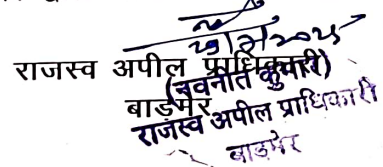 राजस्व अपील प्राधिकारी
(नवनीत कुमार)
बाड़मेर
राजस्व अपील प्राधिकारी
बाड़मेर